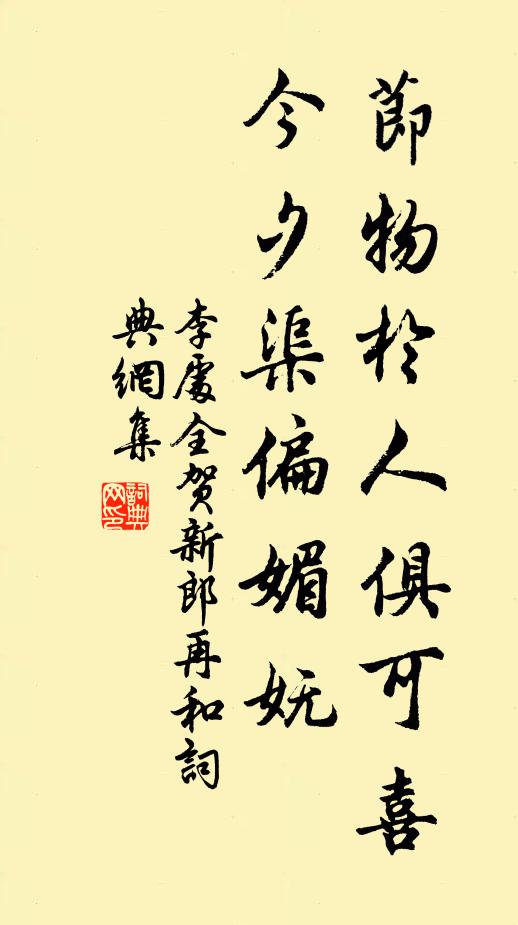 節物於人俱可喜
今夕渠偏媚妩
李處全賀新郎再和詞
典網集
詞典网印